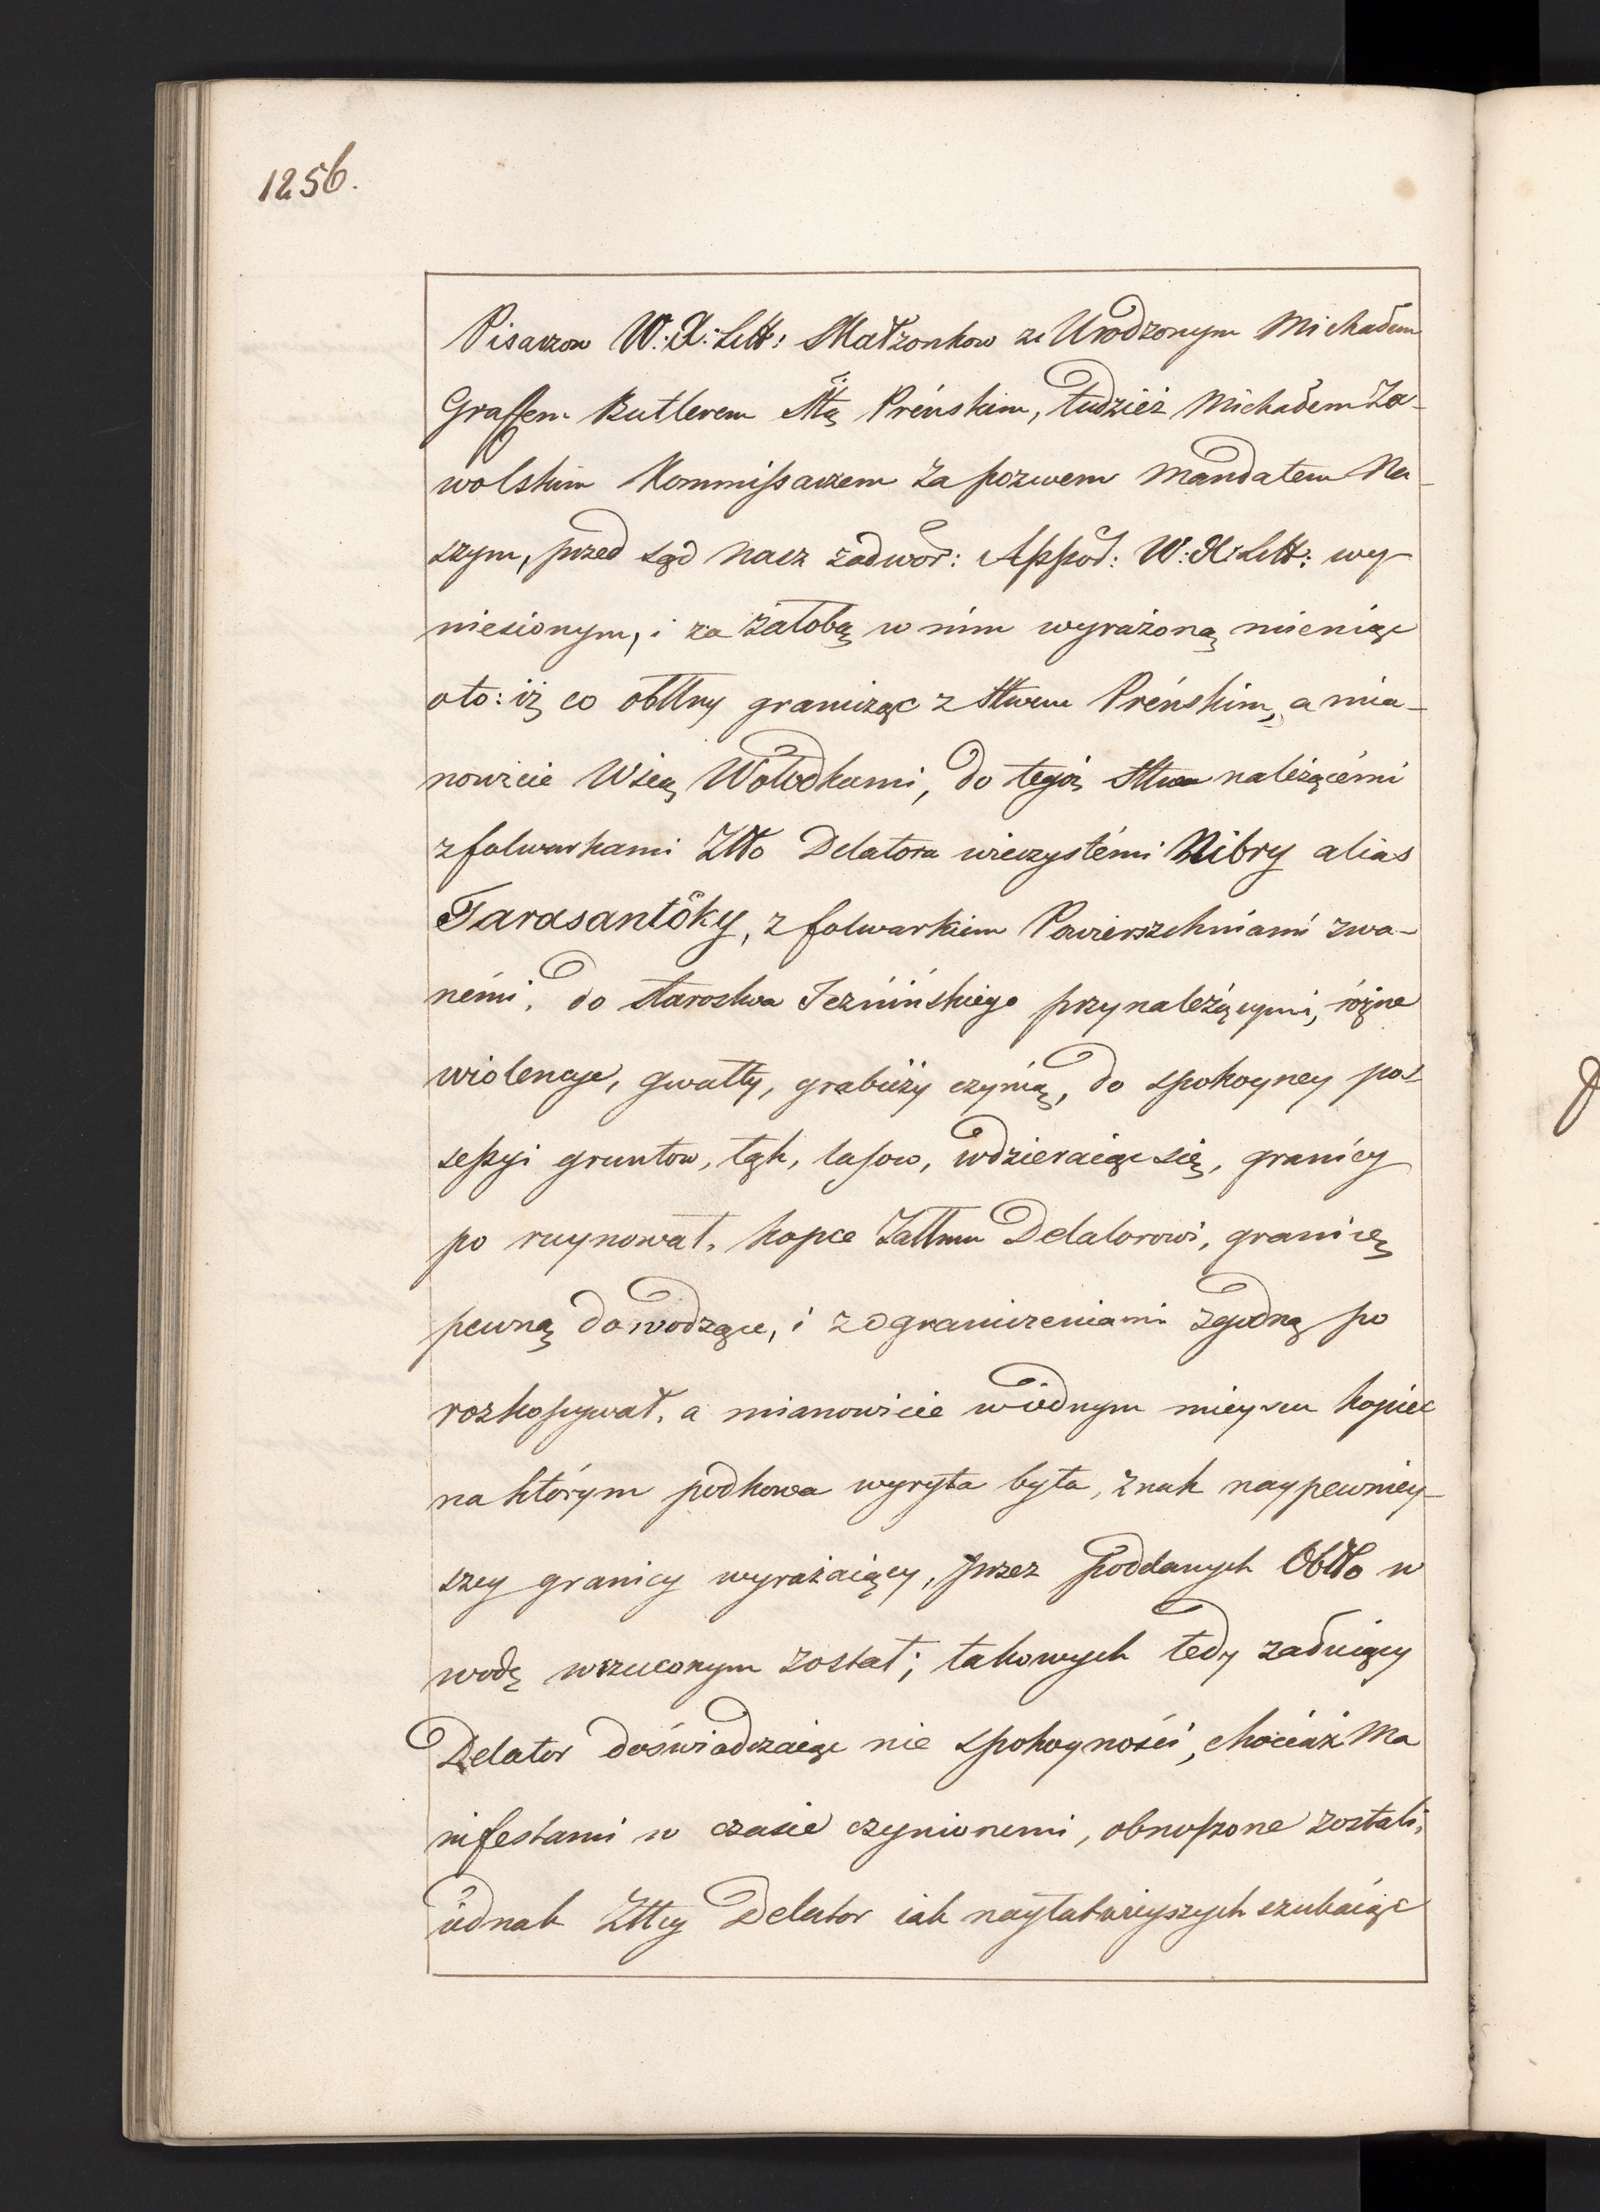 1256.
Pisarzow W: X: Litt: Małzonkow ze Urodzonym Michałem
Graffem Butlerem Sttą Preńskim, tudzież Michałem Za-
wolskim Kommissarzem za pozwem Mandatem Na-
szym, przed sąd nasz zadwor: Appół: W: X: Litt: wy
niesionym, i za żałobą w nim wyrażoną mieniąc
oto: iż co obttny granicząc z Sttwem Preńskim, a mia-
nowicie Wsią Wołodkami, do tegoż Sttwa należącémi
z folwarkami Żttto Delatora wieczystémi Nibry alias
Tarasantöky, z folwarkiem Powierszchniami zwa-
némi, do starostwa Jezńińskiego przynależącymi, różne
wiolencye, gwałty, grabieży czynią, do spokoyney pos-
sessyi gruntow, łąk, lasow, wdzieraiąc się, granicy
po ruynował, kopce Żałłmu Delatorowi, granicę
pewną dowodzące, i z ograniczeniami zgodną po
rozkopywał, a mianowicie w iednym mieyscu kopiec
na którym podkowa wyryta była, znak naypewniey-
szey granicy wyrażaiący, przez poddanych Obttto w
wodę wrzuconym został; takowych tedy żałuiący
Delator doświadczaiąc nie spokoyności, chociaż Ma
nifestami w czasie czynionemi, obnoszone zostali,
iednak Żttcy Delator iak nayłatwieyszych szukaiąc